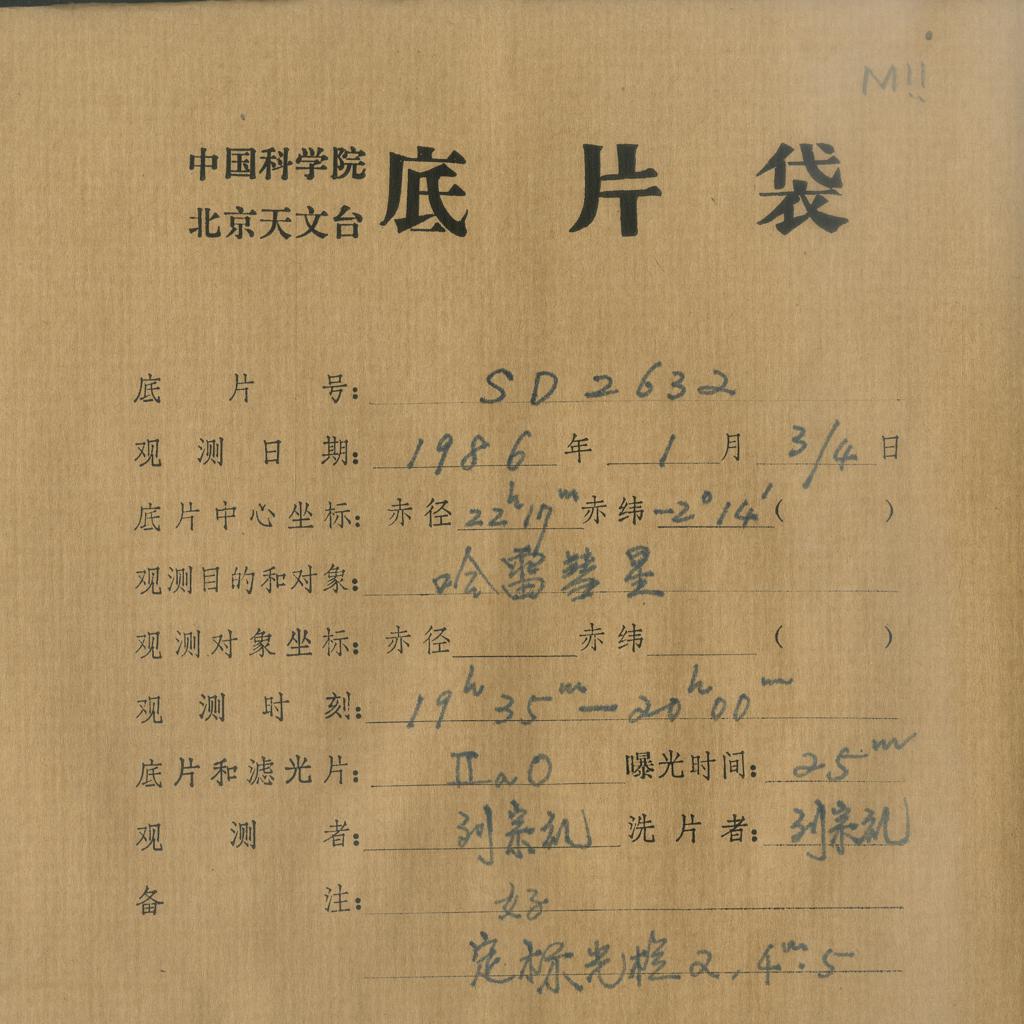 M!!
中国科学院
北京天文台 底片袋
底片号: SD2632
观测日期: 1986年1月3/4日
底片中心坐标: 赤径22ʰ17ᵐ赤纬-2°14′( )
观测目的和对象: 哈雷彗星
观测对象坐标: 赤径 赤纬 ( )
观测时刻: 19ʰ35ᵐ—20ʰ00ᵐ
底片和滤光片: IIaO 曝光时间: 25ᵐ
观测者: 刘宗礼 洗片者: 刘宗礼
备注: 好
定标光楔2,4ᵐ.5